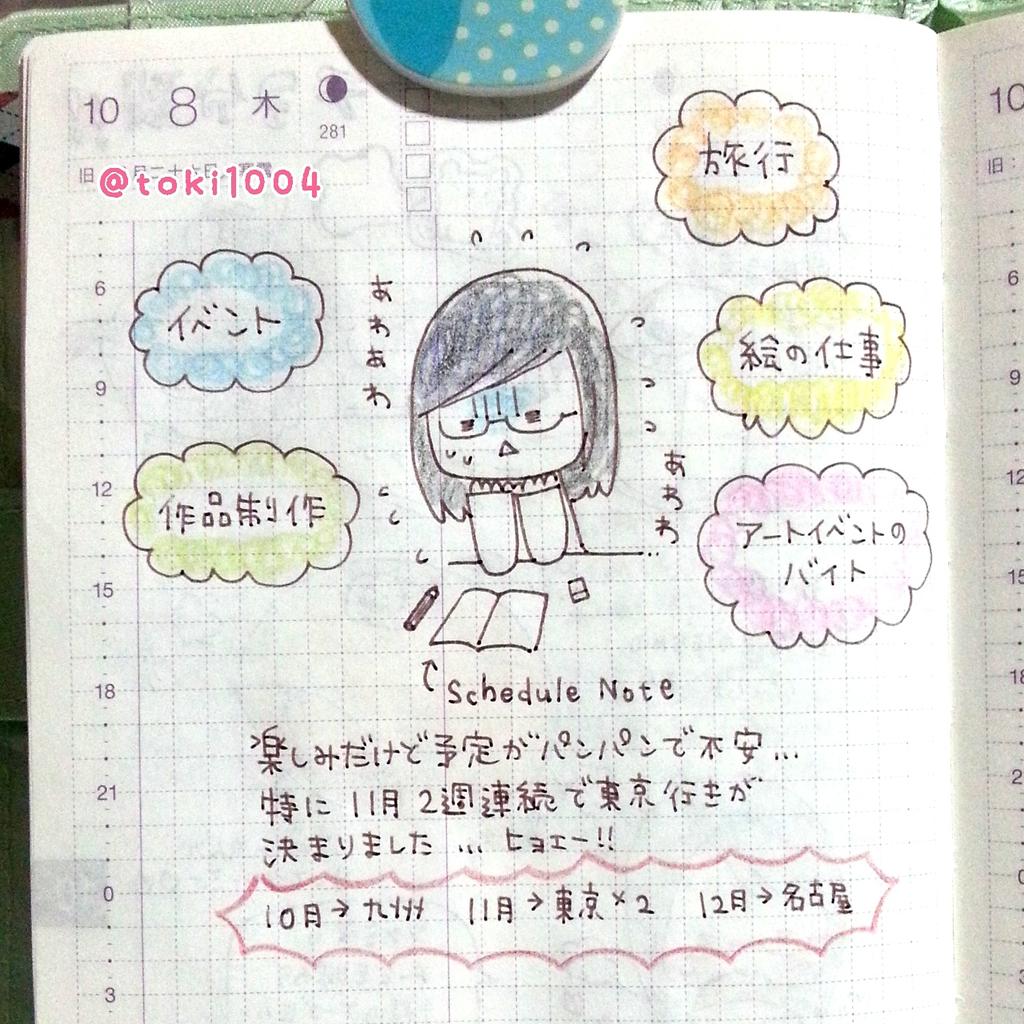 10 8 木
281
旧
@toki1004
旅行
イベント
絵の仕事
作品制作
アートイベントの
バイト
あわあわ
あわわ
6
9
12
15
18
21
0
3
Schedule Note
楽しみだけど予定がパンパンで不安...
特に11月2週連続で東京行きが
決まりました...ヒョエー!!
10月→九州 11月→東京×2 12月→名古屋
10
旧:
6
9
12
15
18